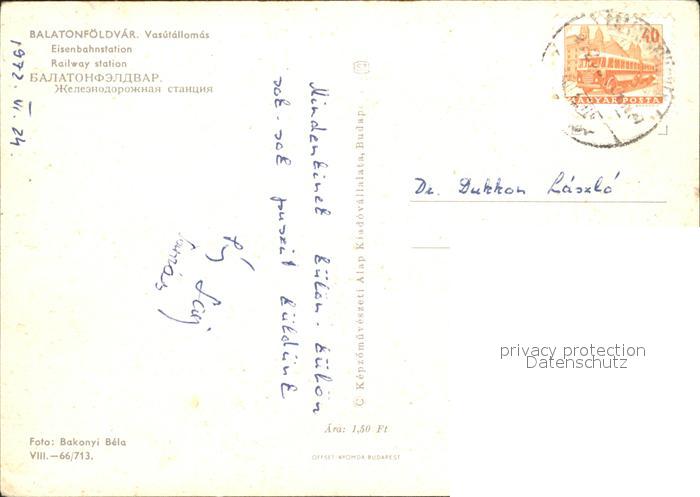 BALATONFÖLDVÁR. Vasútállomás
Eisenbahnstation
Railway station
БАЛАТОНФЭЛДВАР.
Железнодорожная станция
1972. VI. 24.
Mindenkinek külön-külön
sok-sok puszit küldünk
© Képzőművészeti Alap Kiadóvállalata, Budapest
40
MAGYAR POSTA
Dr. Dukkon László
privacy protection
Datenschutz
Ára: 1,50 Ft
Foto: Bakonyi Béla
VIII.—66/713.
OFFSET-NYOMDA BUDAPEST